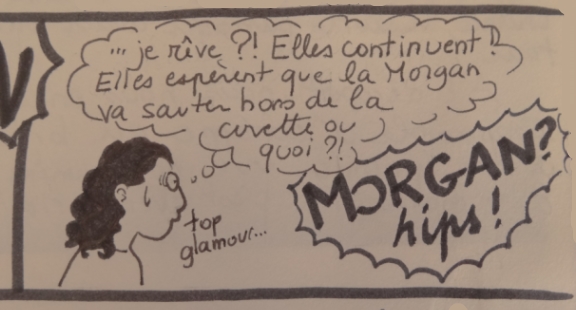 ... je rêve ?! Elles continuent ?
Elles espèrent que la Morgan
va sauter hors de la
cuvette ou
quoi ?!
top
glamour...
MORGAN?
hips!